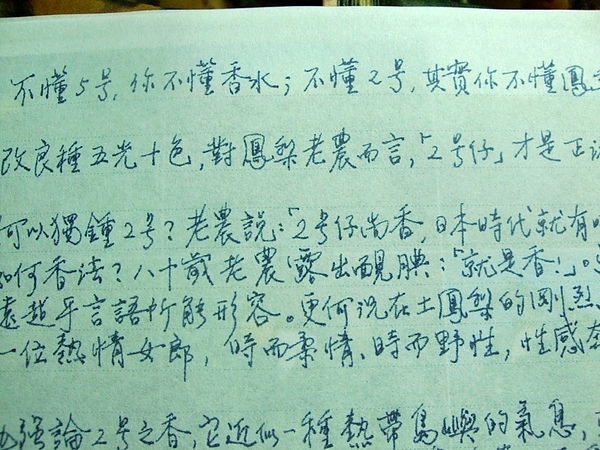 不懂5号,你不懂香水;不懂2号,其實你不懂鳳
改良種五光十色,對鳳梨老農而言,「2号仔」才是正
可以獨鍾2号?老農說:「2号仔尚香,日本時代就有
如何香法?八十歲老農露出靦腆:「就是香!」。
遠超乎言語所能形容。更何況在土鳳梨的剛烈
一位熱情女郎,時而柔情、時而野性,性感
強論2号之香,它近似一種熱帶島嶼的氣息,